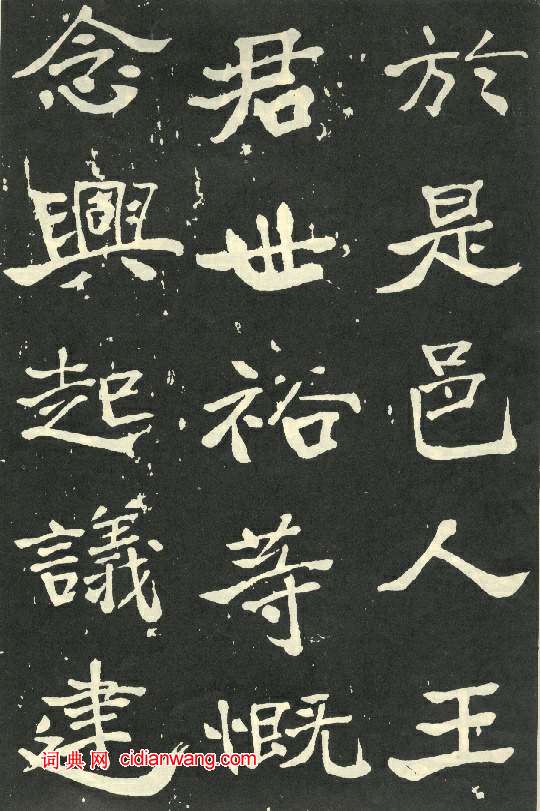 於是邑人王
君世裕等慨
念興起議建
词典网 cidianwang.com